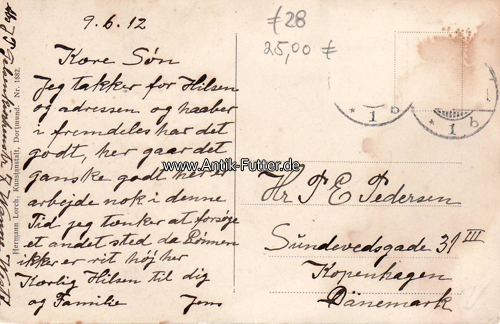 9.6.12
Kære Søn
Jeg takker for Hilsen
og adressen og haaber
i fremdeles har det
godt, her gaar det
ganske godt, her er
arbejde nok i denne
Tid, jeg tænker at forsøge
et andet sted da Lønnen
ikke er vit høj her
Kærlig Hilsen til dig
og Familie Jens
£28
25,00 €
* 1 b
* 1 b
www.Antik-Futter.de
Hr P E Pedersen
Sundevedsgade 31 III
Kopenhagen
Dänemark
Hermann Lorch, Kunstanstalt, Dortmund. Nr. 1882.